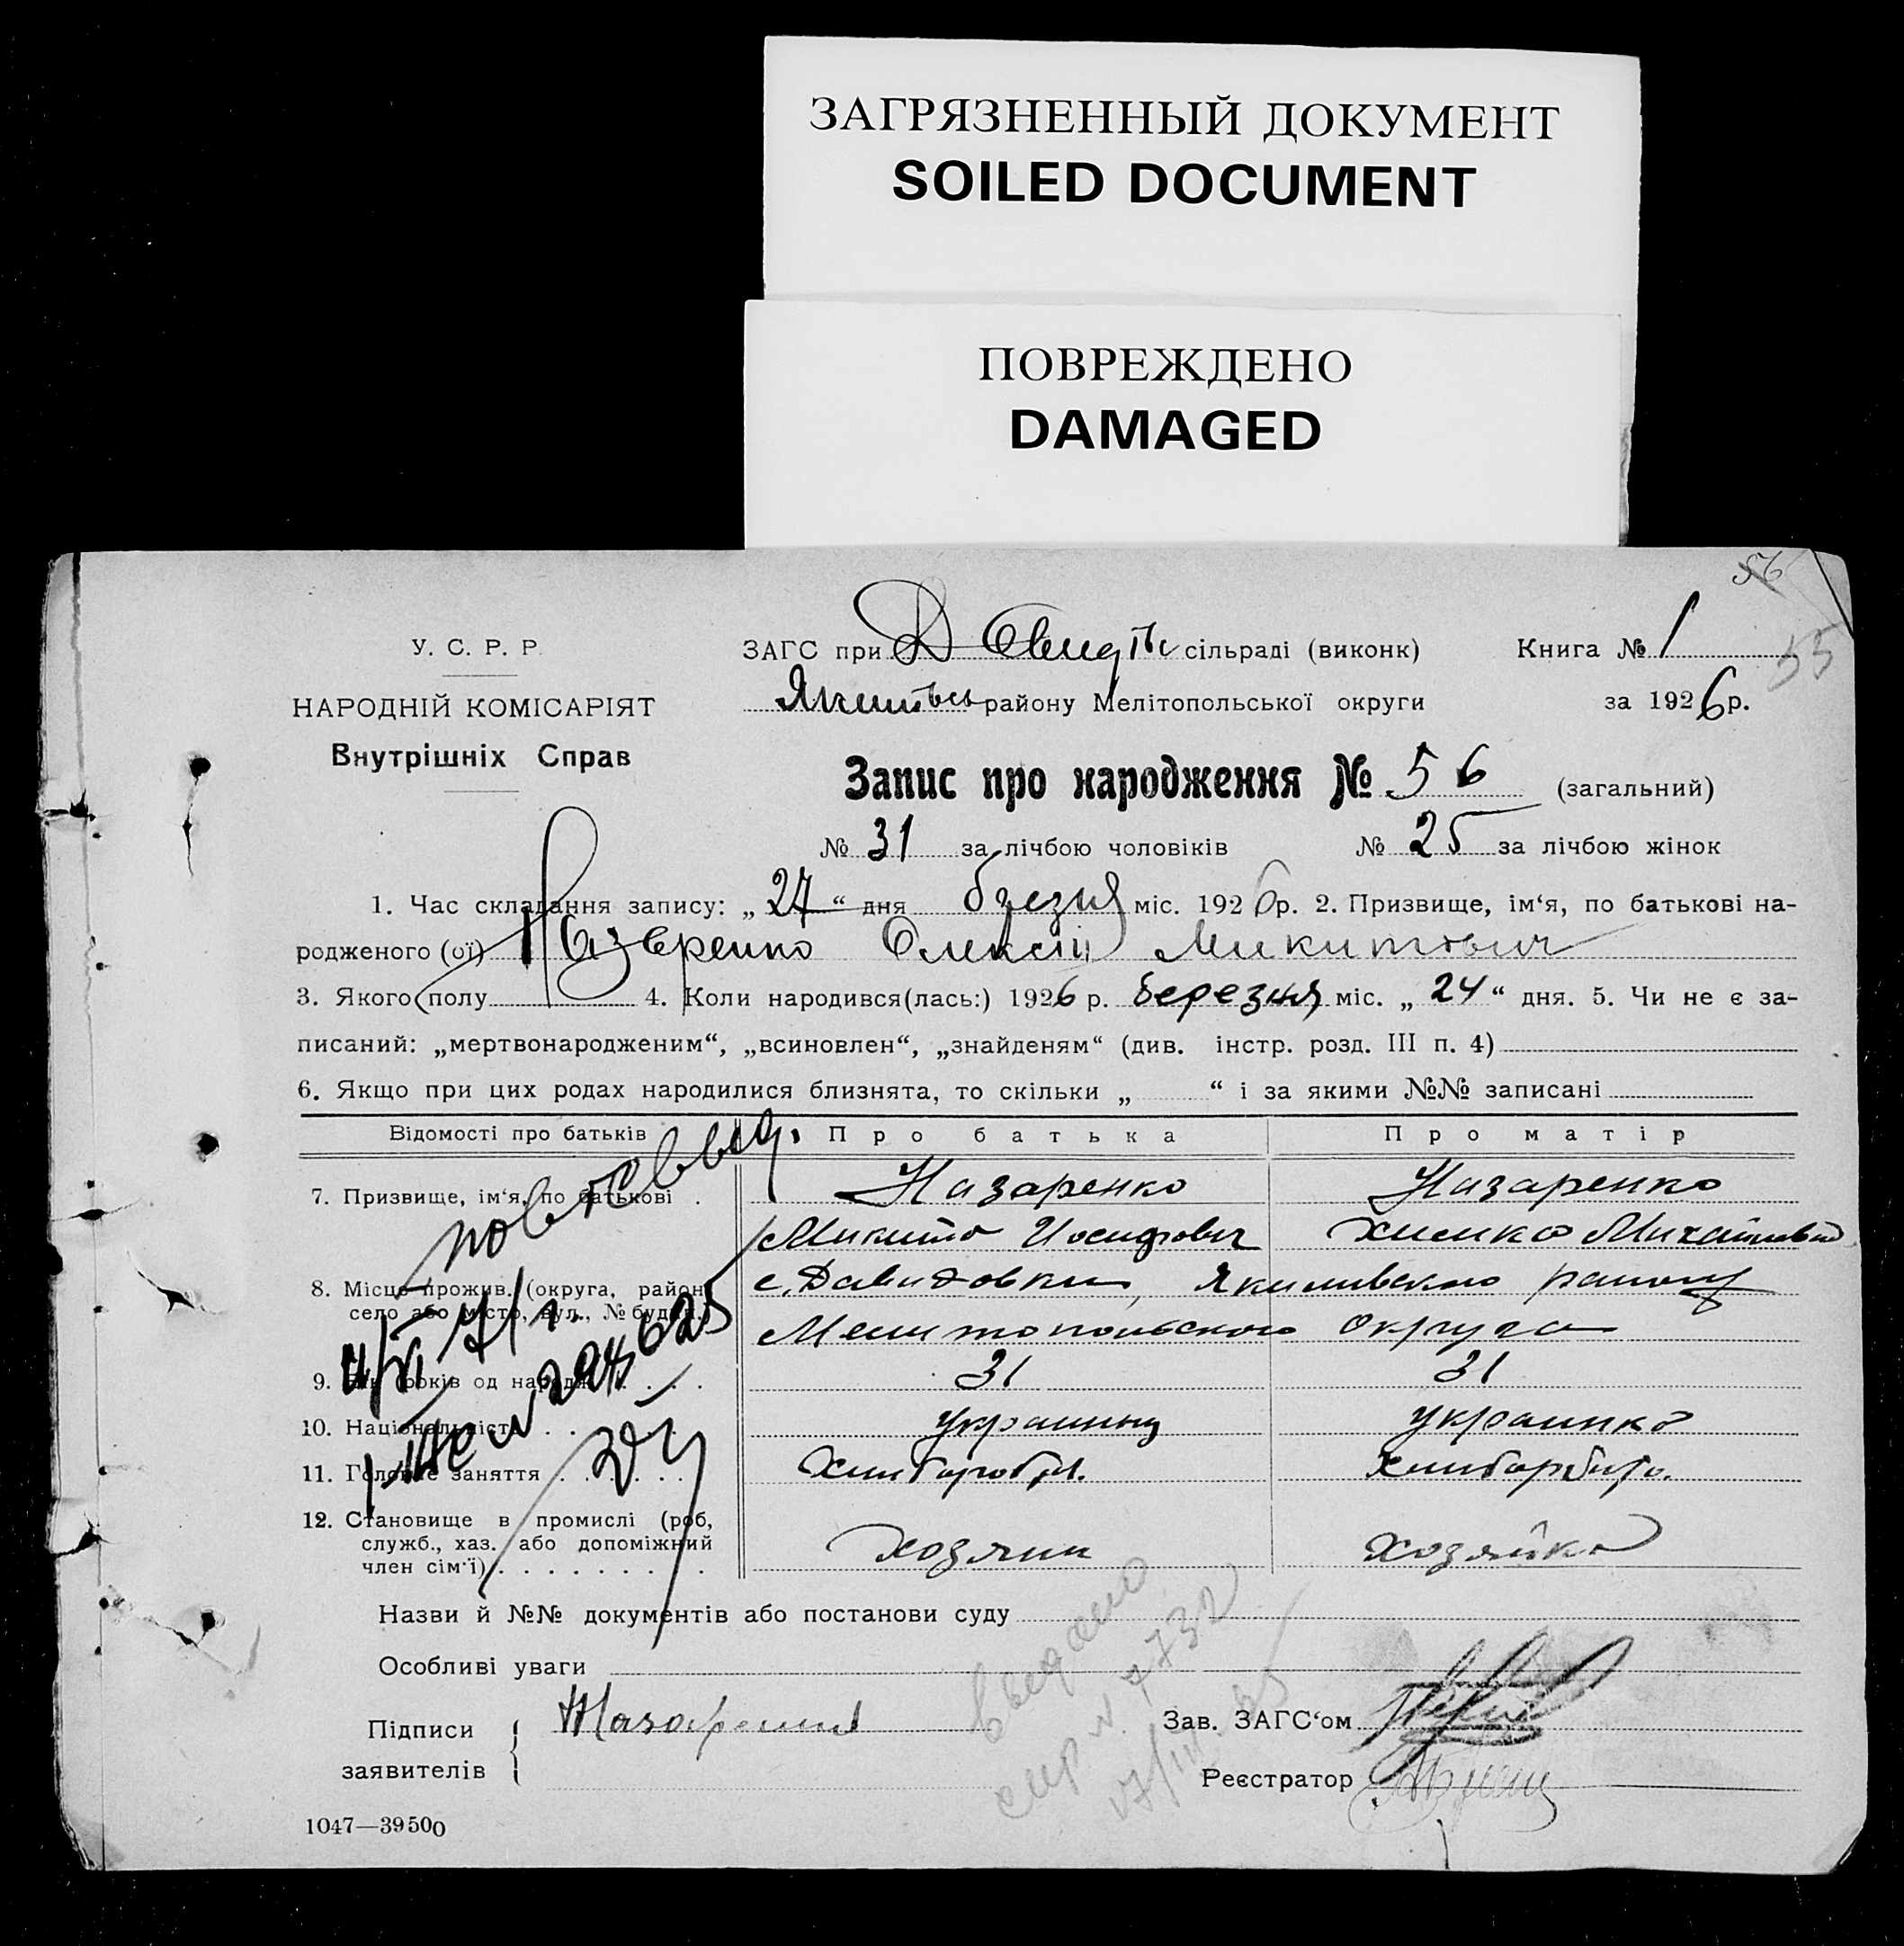 ЗАГРЯЗНЕННЫЙ ДОКУМЕНТ
SOILED DOCUMENT
ПОВРЕЖДЕНО
DAMAGED
56
55
У. С. Р. Р.
НАРОДНІЙ КОМІСАРІЯТ
Внутрішніх Справ
ЗАГС при сільраді (виконк) Книга № 1
району Мелітопольської округи за 1926 р.
Запис про народження № 56 (загальний)
№ 31 за лічбою чоловіків № 25 за лічбою жінок
1. Час складання запису: „ 27 “ дня міс. 1926 р. 2. Призвище, ім‘я, по батькові на-
родженого (ої) Назаренко Олексій Микитович
3. Якого полу 4. Коли народився(лась:) 1926 р. березня міс. „ 24 “ дня. 5. Чи не є за-
писаний: „мертвонародженим“, „всиновлен“, „знайденям“ (див. інстр. розд. III п. 4)
6. Якщо при цих родах народилися близнята, то скільки „ “ і за якими №№ записані
Відомості про батьків Про батька Про матір
7. Призвище, ім‘я, по батькові . Назаренко Назаренко
Микита Иосифович
8. Місце прожив. (округа, район, с. Давидовки, Якимивского району
село або місто, вул., № будин.) Мелитопольского округа
9. Вік (років од народж.) . . . . 31 31
10. Національність . . . . украинец украинка
11. Головне заняття . . . . . .
12. Становище в промислі (роб,
служб., хаз. або допоміжний хозяин хозяйка
член сім‘ї) . . . . . . . . .
Назви й №№ документів або постанови суду
Особливі уваги
Підписи Назаренко Зав. ЗАГС‘ом
заявителів Реєстратор
1047—39500